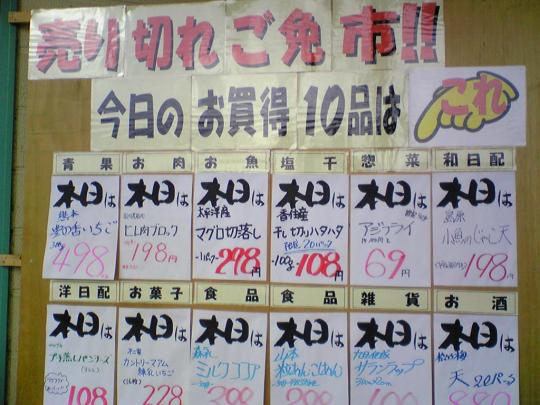 売り切れご免市!!
今日のお買得10品は
これ
青果 お肉 お魚 塩干 惣菜 和日配
本日は
熊本
いちご
498円
本日は
ヒレ肉ブロック
198円
本日は
太平洋産
マグロ切落し
298円
本日は
香住産
干し切りハタハタ
100g
108円
本日は
アジフライ
69円
本日は
小魚のじゃこ天
198円
洋日配 お菓子 食品 食品 雑貨 お酒
本日は
108
本日は
不二家
カントリーマアム
練乳いちご
228
本日は
森永
ミルクココア
398
本日は
山本
398
本日は
旭化成
サランラップ
本日は
松竹梅
天 2.0パック
880